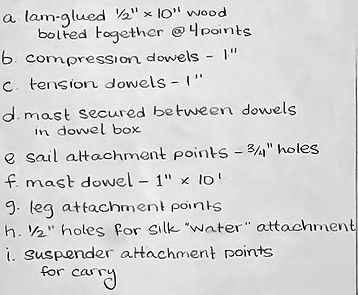 a. lam-glued 1/2" x 10" wood
bolted together @ 4 points
b. compression dowels - 1"
c. tension dowels - 1"
d. mast secured between dowels
in dowel box
e sail attachment points - 3/4" holes
f. mast dowel - 1" x 10'
g. leg attachment points
h. 1/2" holes for silk "water" attachment
i. suspender attachment points
for carry